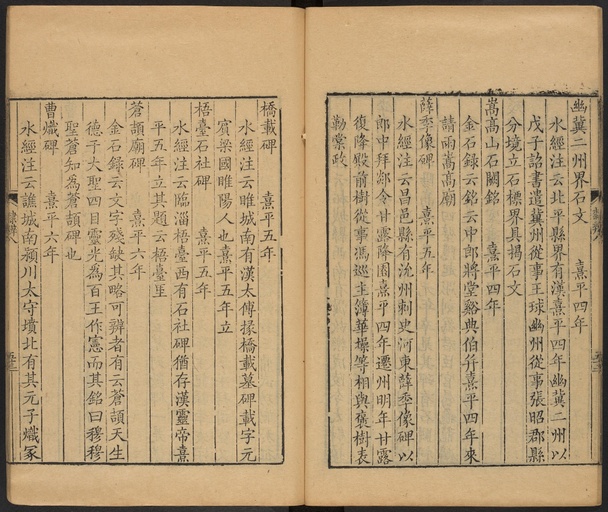 幽冀二州界石文 熹平四年
水經注云北平縣界有漢熹平四年幽冀二州以
戊子詔書遣冀州從事王球幽州從事張昭郡縣
分境立石標界具揭石文
嵩高山石闕銘 熹平四年
金石錄云銘云中郎將堂谿典伯幷熹平四年來
請雨嵩高廟
薛季像碑 熹平五年
水經注云昌邑縣有沇州刺史河東薛季像碑以
郎中拜剡令甘露降園熹平四年遷州明年甘露
復降殿前樹從事馮巡主簿華操等相與襃樹表
勒棠政
橋載碑 熹平五年
水經注云睢城南有漢太傅掾橋載墓碑載字元
賓梁國睢陽人也熹平五年立
梧臺石社碑 熹平五年
水經注云臨淄梧臺西有石社碑猶存漢靈帝熹
平五年立其題云梧臺里
蒼頡廟碑 熹平六年
金石錄云文字殘缺其略可辨者有云蒼頡天生
德于大聖四目靈光為百王作憲而其銘曰穆穆
聖蒼知為蒼頡碑也
曹熾碑 熹平六年
水經注云譙城南潁川太守墳北有其元子熾冢
隸辨八